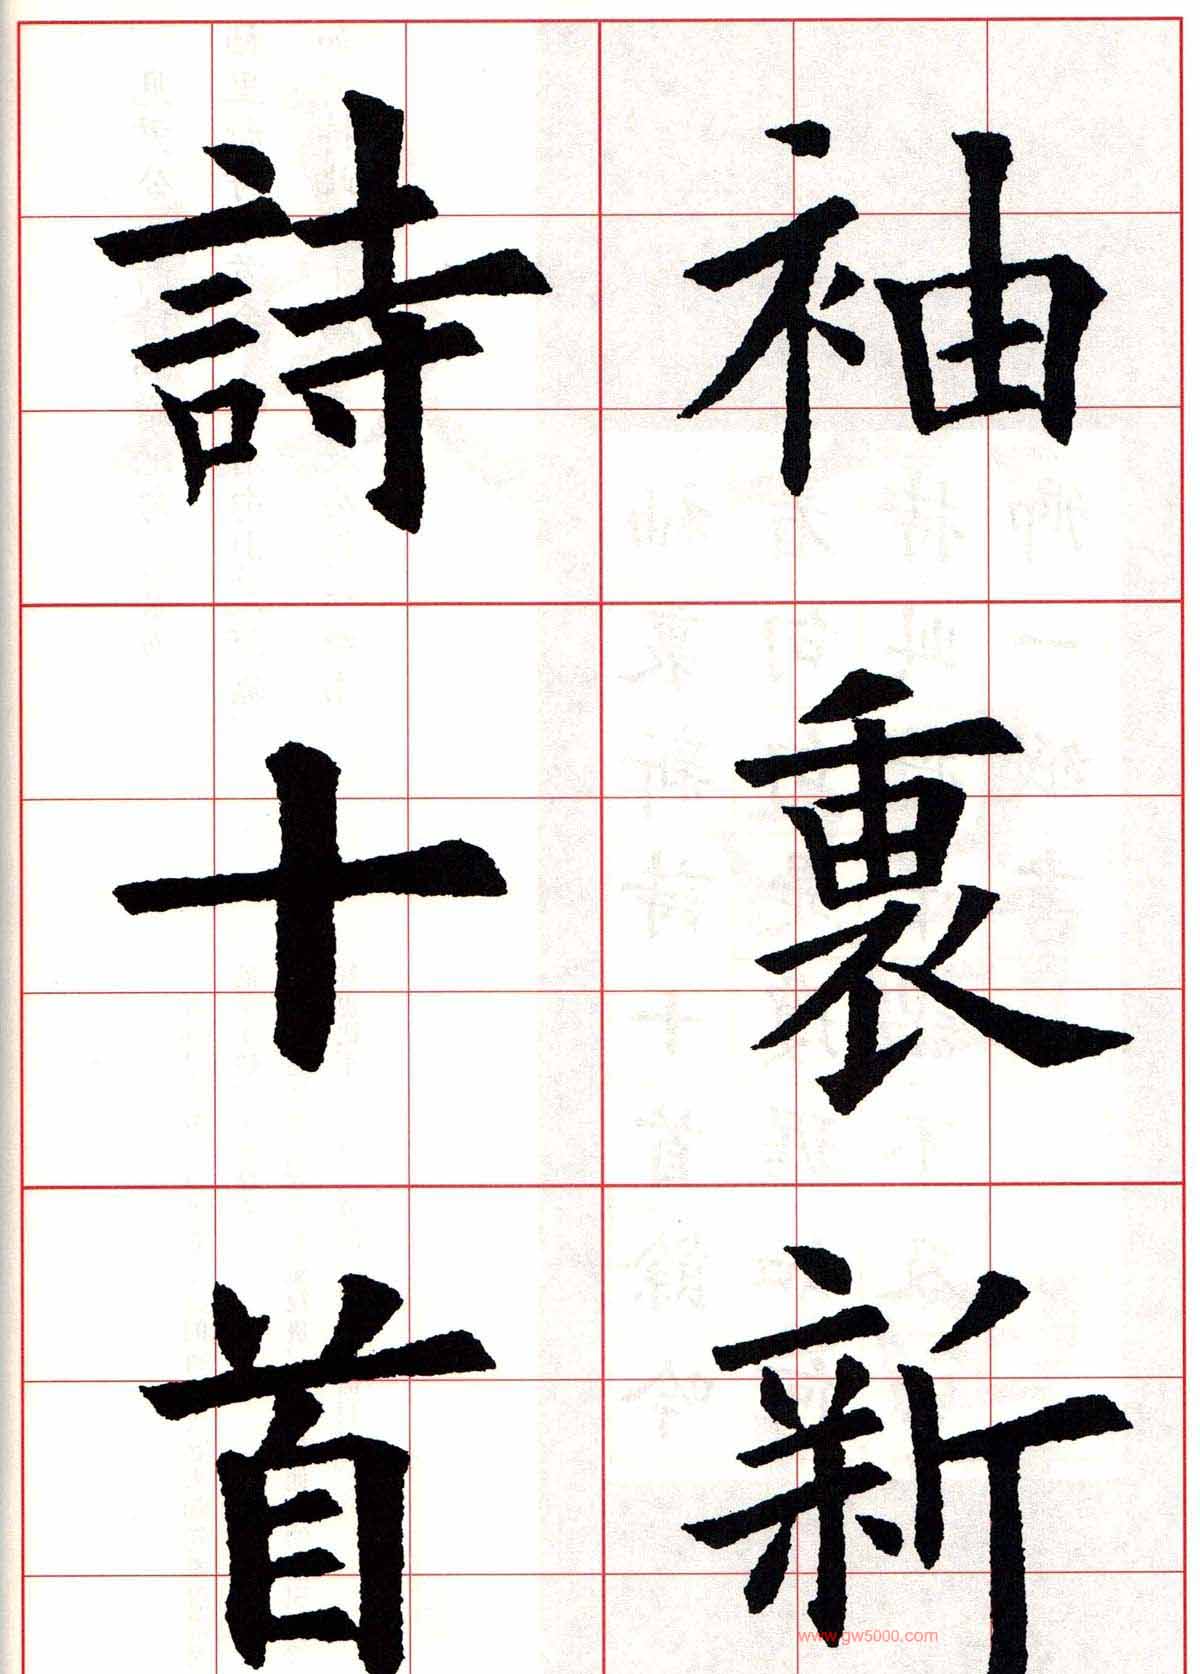 袖裏新
詩十首
www.gw5000.com